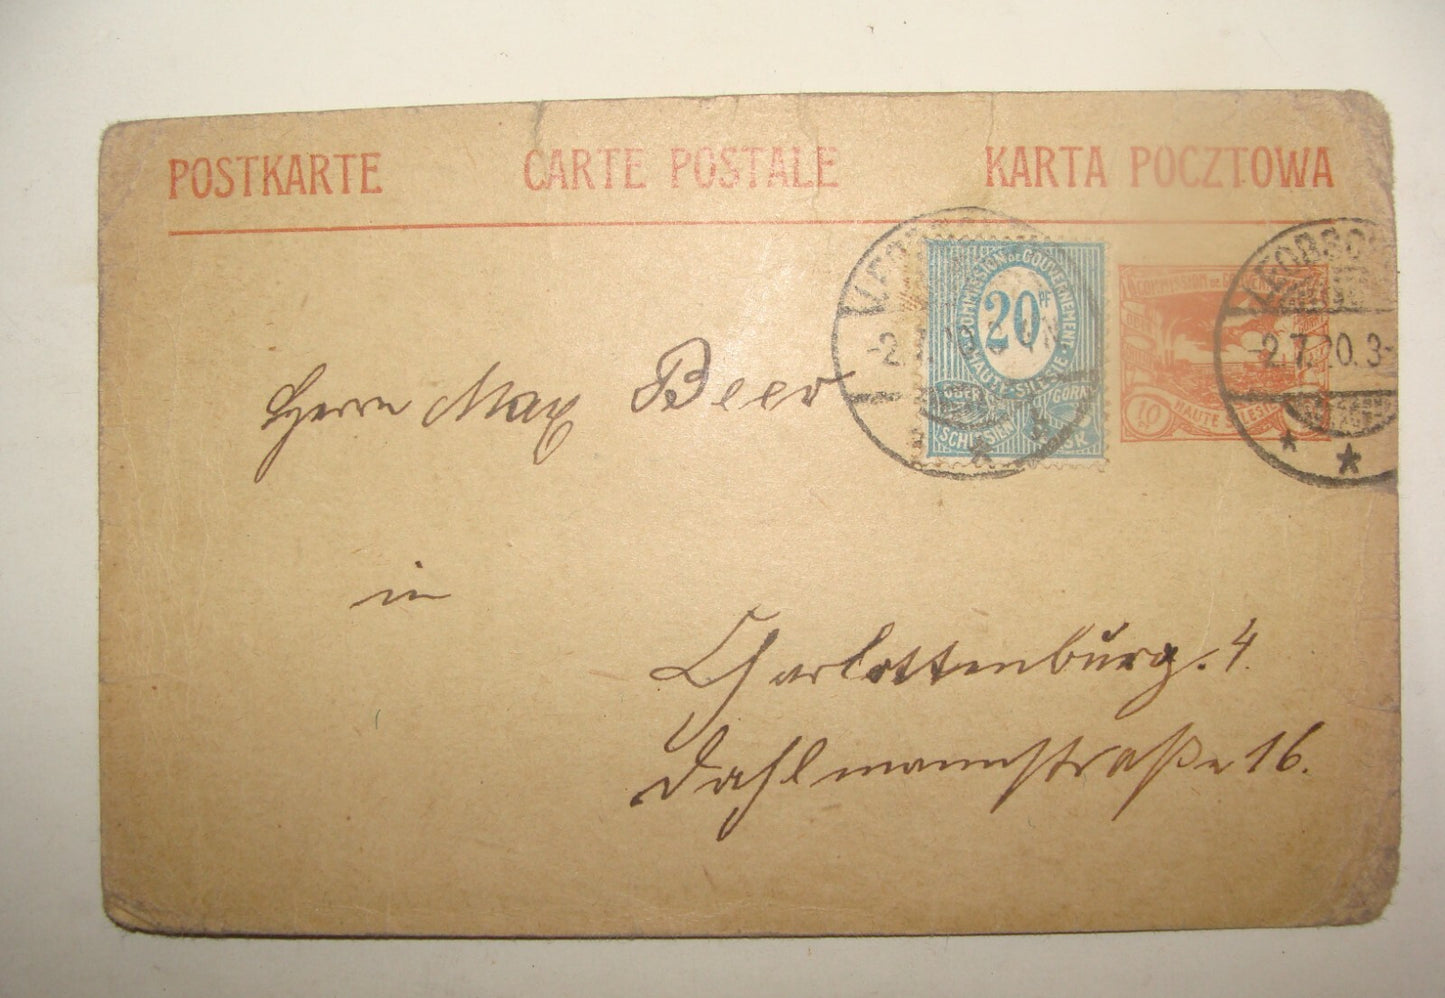 POSTKARTE CARTE POSTALE KARTA POCZTOWA
COMMISSION DE GOUVERNEMENT
20 PF
HAUTE-SILESIE
OBER SCHLESIEN
GÓRNY
COMMISSION DE
10
HAUTE SILESIE
LEOBSCH
2.7.20.3-
Herrn Max Beer
in
Charlottenburg. 4.
Dahlmannstraße 16.